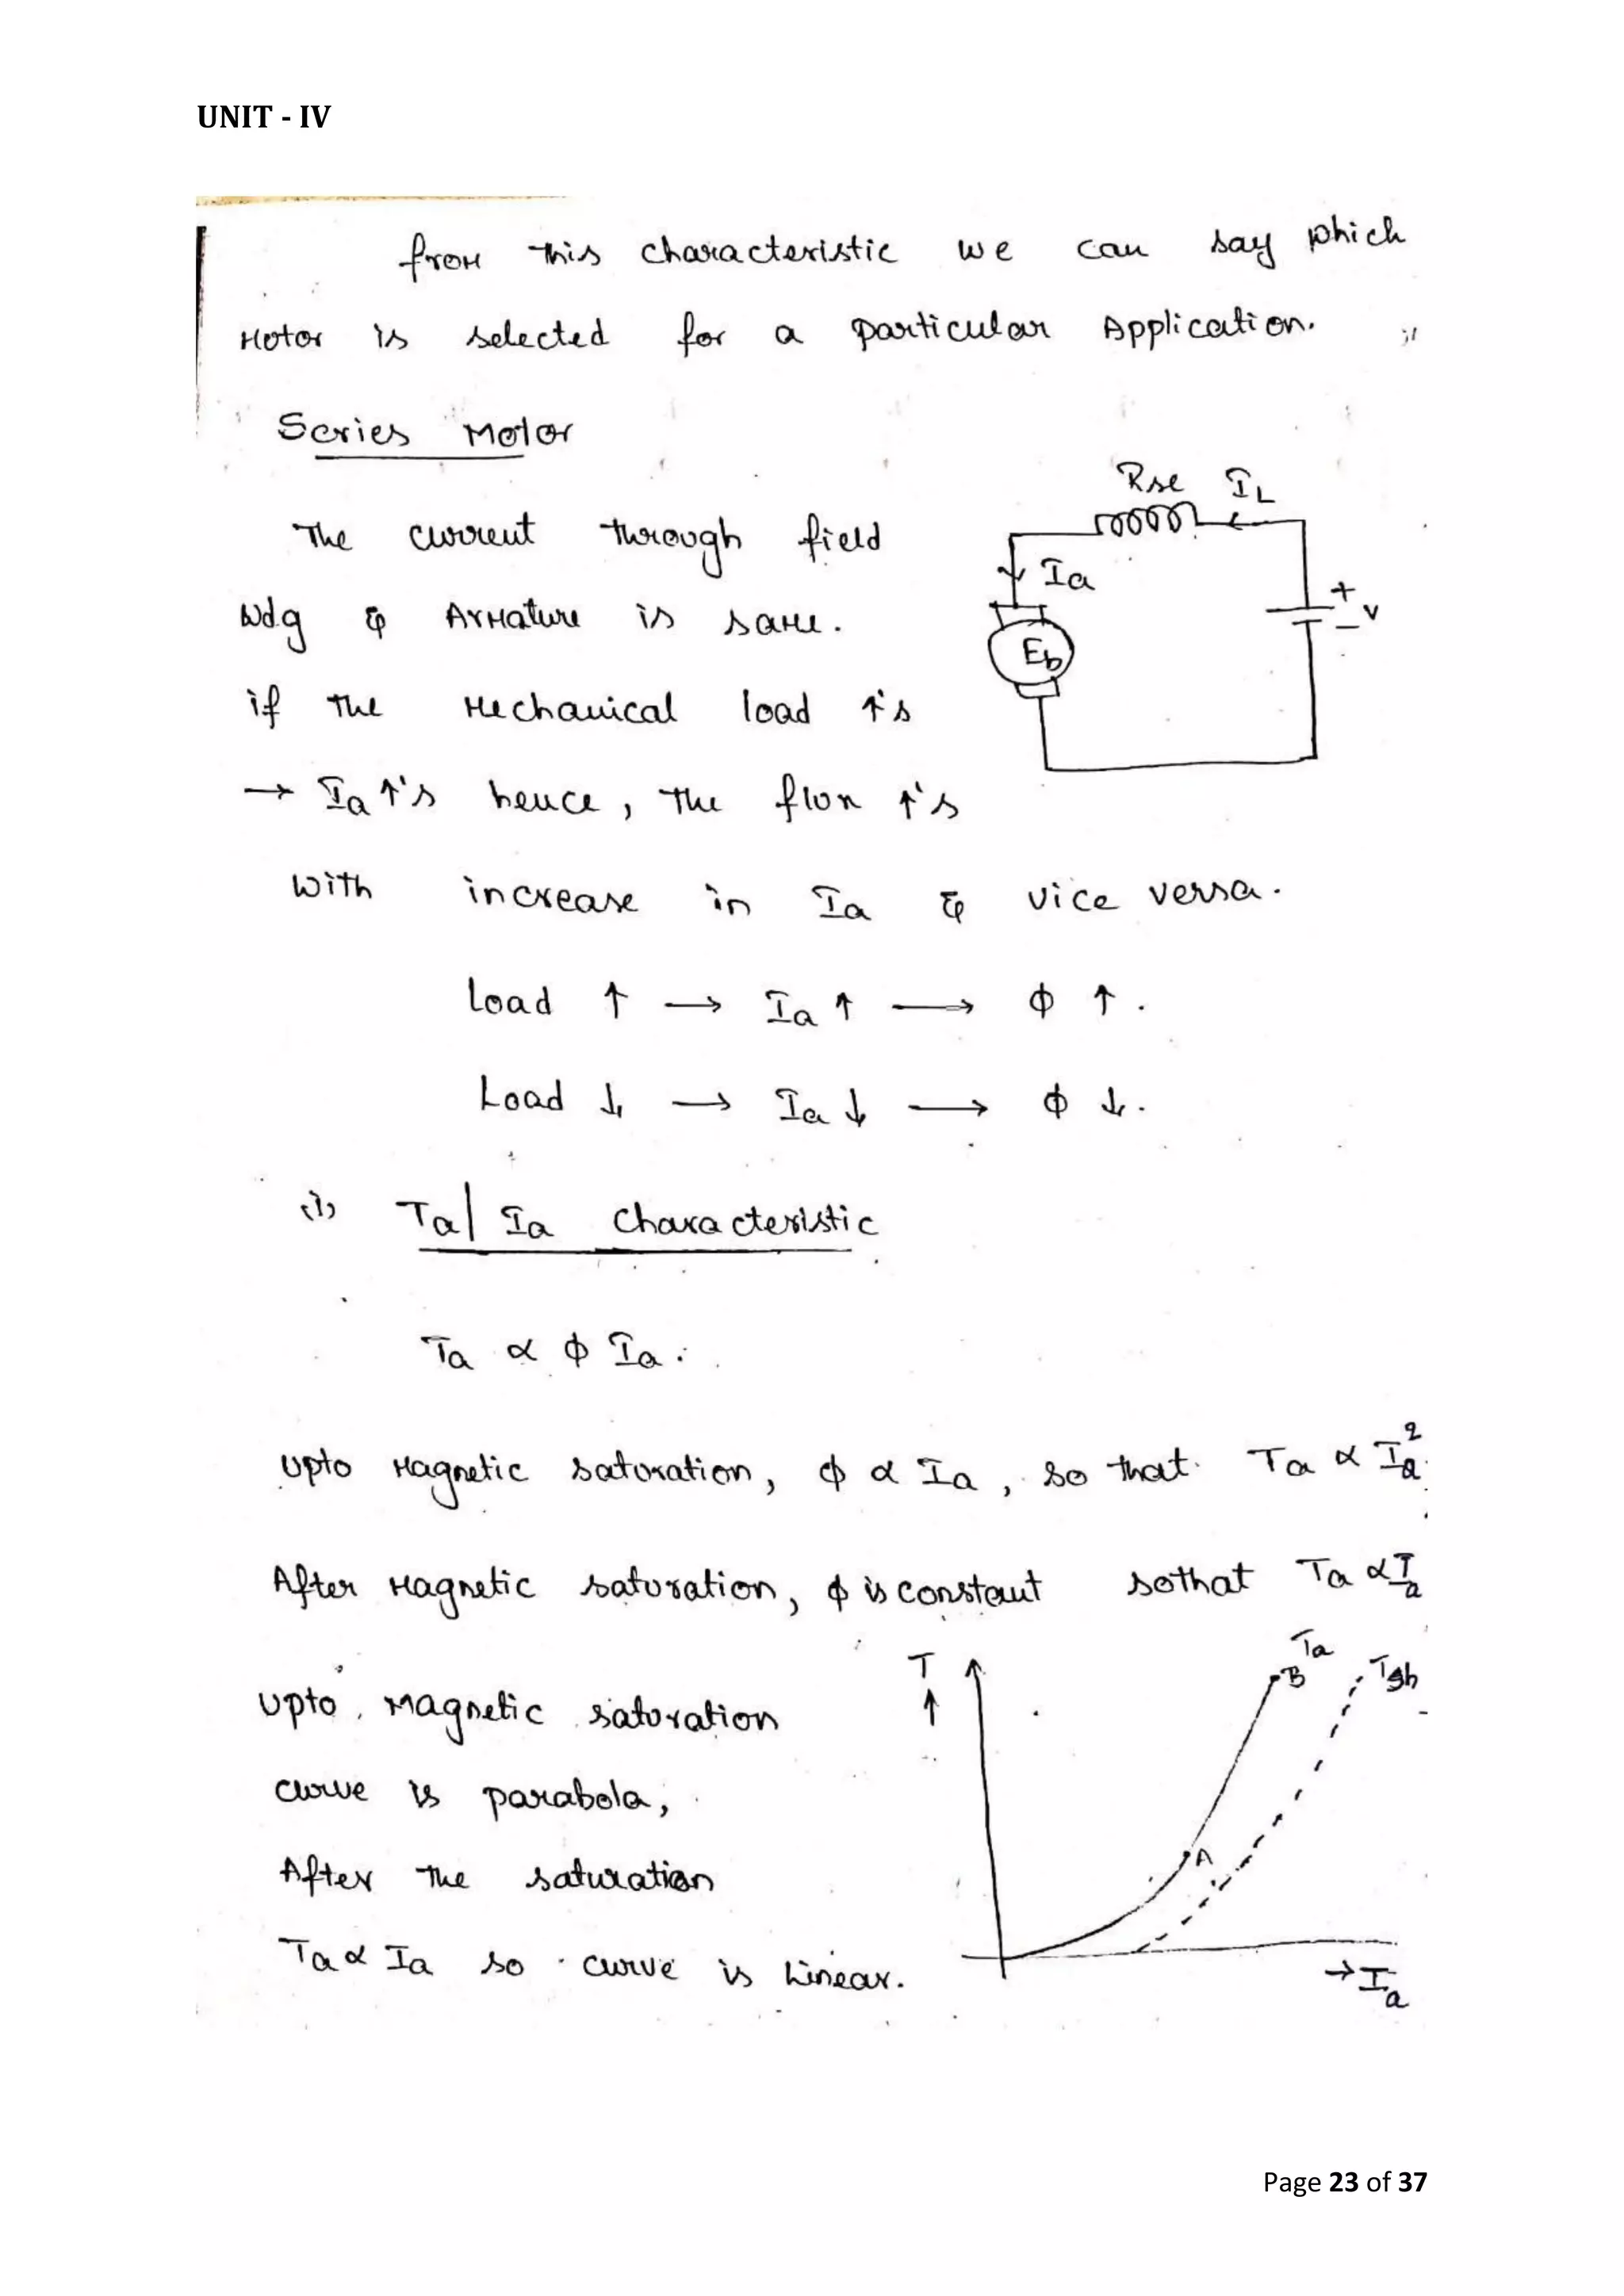 UNIT - IV
from this characteristic we can say which
Motor is selected for a particular Application.
Series Motor
Rse IL
The current through field
Ia
wdg & Armature is same.
+
V
-
Eb
if the Mechanical load ↑'s
→ Ia ↑'s hence, The flux ↑'s
with increase in Ia & vice versa.
Load ↑ → Ia ↑ → ϕ ↑.
Load ↓ → Ia ↓ → ϕ ↓.
(i) Ta| Ia characteristic
Ta α ϕ Ia.
upto Magnetic saturation, ϕ α Ia, so that Ta α Ia²
After Magnetic saturation, ϕ is constant sothat Ta α Ia
T
↑
Ta
B
Tsh
upto Magnetic saturation
curve is parabola,
After The saturation
A
Ta α Ia so curve is Linear.
→ Ia
Page 23 of 37